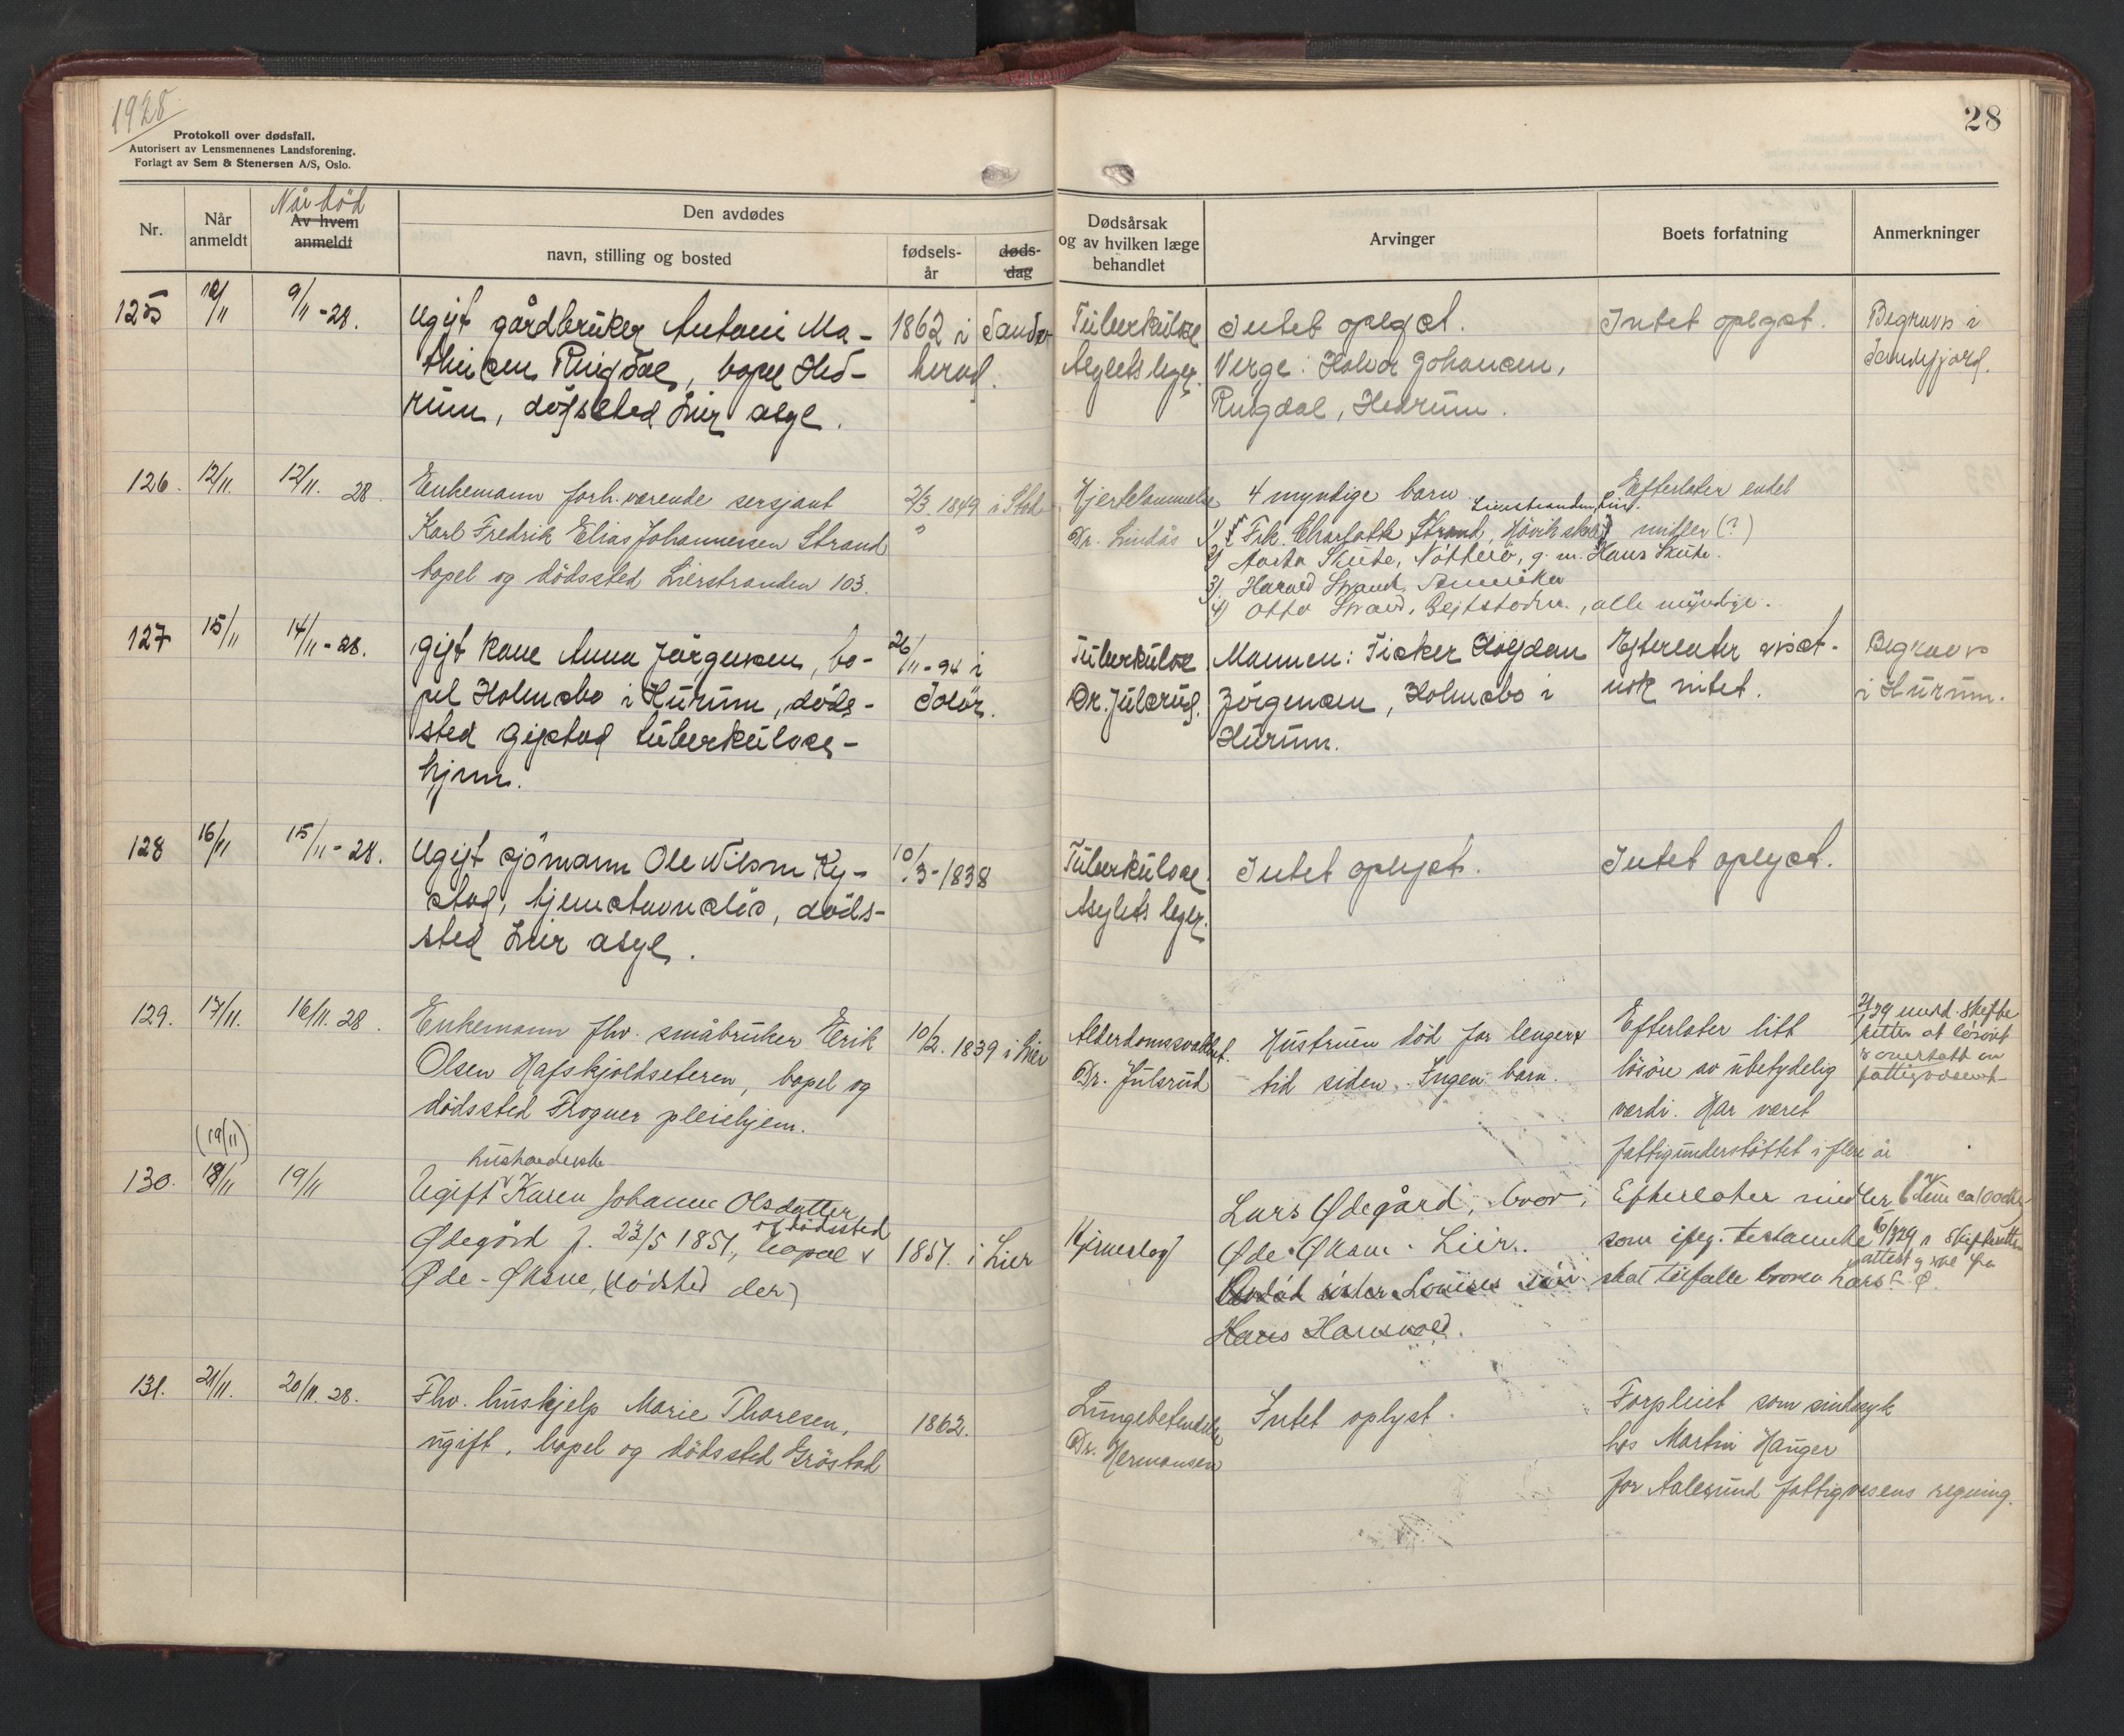 1928
28
Protokoll over dødsfall.
Autorisert av Lensmennenes Landsforening.
Forlagt av Sem & Stenersen A/S, Oslo.
Nr.
Når anmeldt
Når død
Av hvem anmeldt
Den avdødes
navn, stilling og bosted
fødsels-
år
døds-
dag
Dødsårsak
og av hvilken læge
behandlet
Arvinger
Boets forfatning
Anmerkninger
125
10/11
9/11-28.
Ugift gårdbruker Antoni Ma-
thisen Ringdal, bopel Hed-
rum, dødssted Lier asyl.
1862 i Sande-
herad.
Tuberkulose
Asylets leger.
Intet oplyst.
Verge: Halvor Johansen,
Ringdal, Hedrum.
Intet oplyst.
Begraves i
Sandefjord.
126.
12/11.
12/11. 28.
Enkemann forh. værende sersjant
Karl Fredrik Elias Johannessen Strand
bopel og dødssted Lierstranden 103.
2/3. 1849 i Stod
Hjertelammelse
Dr. Lindås
4 myndige barn
Lierstranden, Lier.
1) Frk. Charlotte Strand, Høvik skole
2) Aasta Skute, Nøtterø, g. m. Hans Skute.
3) Harald Strand, Amerika
4) Otto Strand, Beitstaden, alle myndige.
Efterlater endel
midler (?)
127
15/11
14/11-28.
Gift kone Anna Jørgensen, bo-
pel Holmsbo i Hurum, døds-
sted Gjestad tuberkulose-
hjem.
26/11-94 i
Solør.
Tuberkulose
Dr. Julsrud.
Mannen: Fisker Halfdan
Jørgensen, Holmsbo i
Hurum.
Efterlater visst-
nok intet.
Begraves
i Hurum.
128
16/11
15/11-28.
Ugift sjømann Ole Nilsen Ky-
stad, hjemstavnsløs, døds-
sted Lier asyl.
10/3-1838
Tuberkulose
Asylets leger.
Intet oplyst.
Intet oplyst.
129.
17/11.
16/11. 28.
Enkemann fhv. småbruker Erik
Olsen Hafskjoldseteren, bopel og
dødssted Frogner pleiehjem.
10/2. 1839 i Lier
Alderdomssvakhet.
Dr. Julsrud
Hustruen død for lengere
tid siden. Ingen barn.
Efterlater litt
løsøre av ubetydelig
værdi. Har været
fattigunderstøttet i flere år
skifte
retten at løsøret
er overtatt av
fattigvesenet
(19/11)
130.
18/11
19/11
husholderske
Ugift Karen Johanne Olsdatter
Ødegård f. 23/5 1851, bopel og dødssted
Øde-Øksne, (dødsted der)
1851. i Lier
Hjerneslag
Lars Ødegård, bror,
Øde-Øksne. Lier.
Avdød søster Louises søn
Hans Hansvold.
Efterlater midler
som iføg. testamente
skal tilfalle broren Lars O. Ø.
131.
21/11.
20/11. 28.
Fhv. huskjelp Marie Thoresen,
ugift, bopel og dødssted Grøstad
1862.
Lungebetendelse
Dr. Hermansen
Intet oplyst.
Forpleiet som sindssyk
hos Martin Hauger
for Aalesund fattigvesens regning.